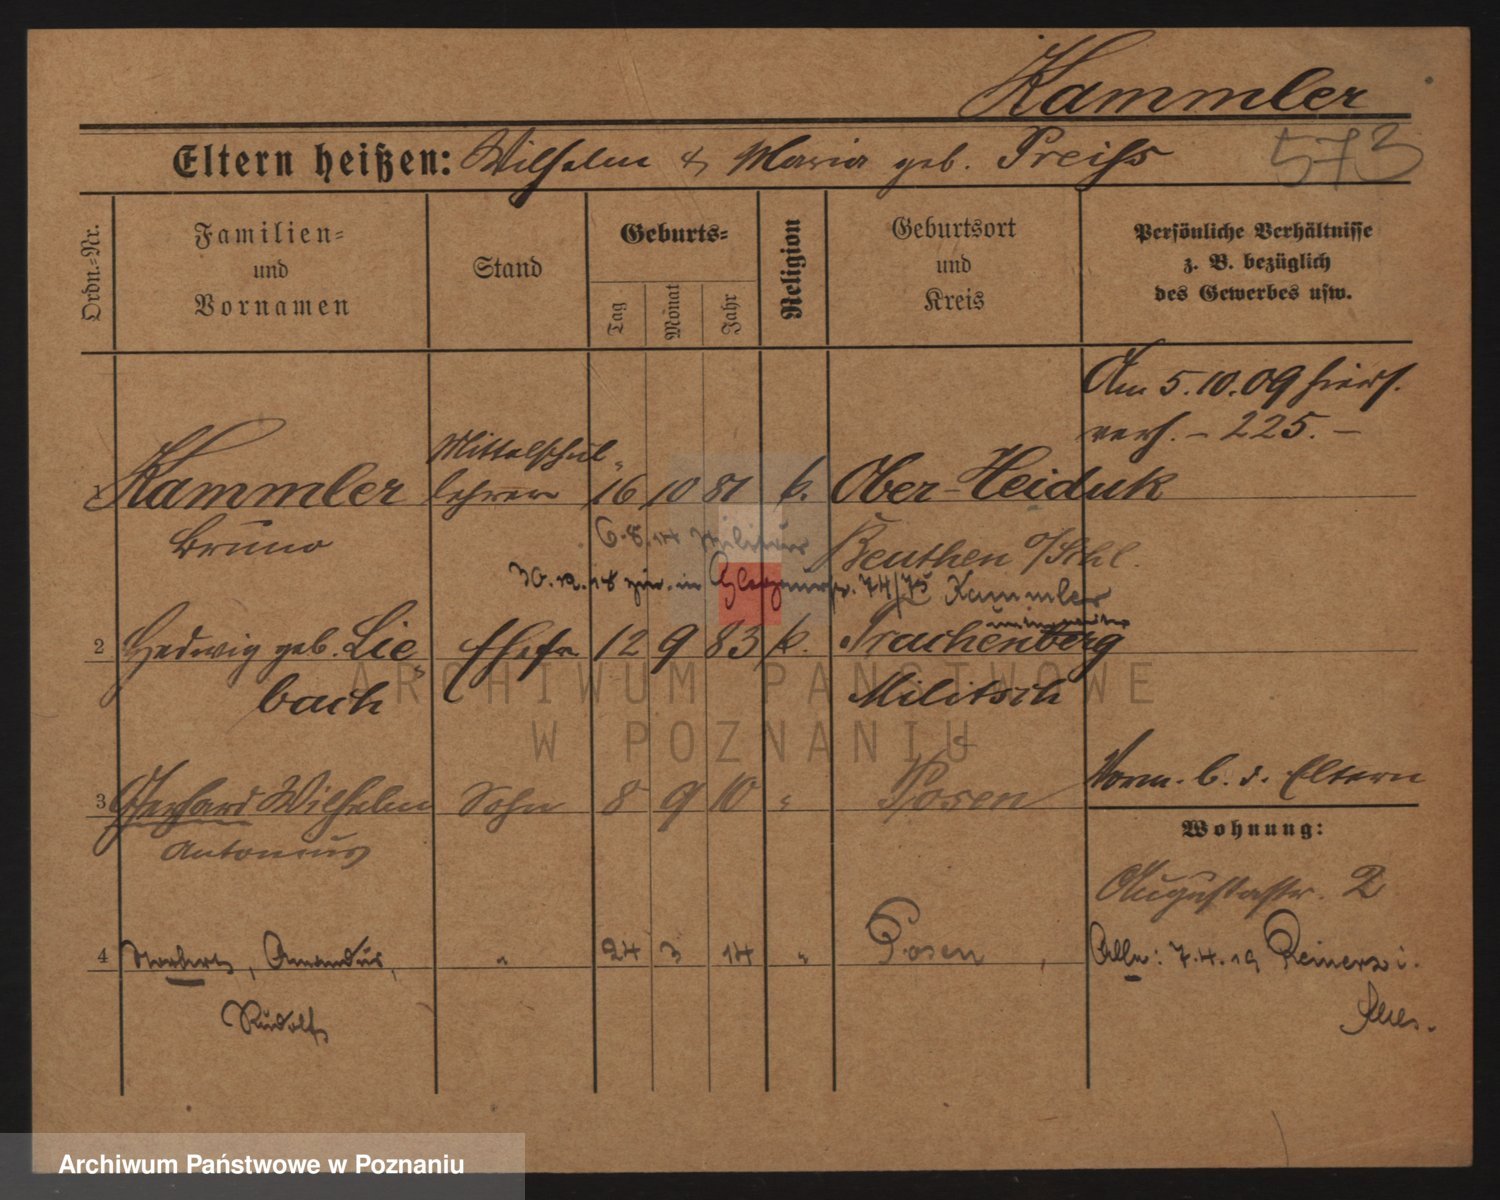 Kammler
Eltern heißen: Wilhelm & Maria geb. Preiss
573
Ordn.-Nr.
Familien-
und
Vornamen
Stand
Geburts-
Tag
Monat
Jahr
Religion
Geburtsort
und
Kreis
Persönliche Verhältnisse
z. B. bezüglich
des Gewerbes usw.
Am 5.10.09 hiers.
verh. – 225. –
Mittelschul-
1 Kammler lehrer 16 10 81 k. Ober-Heiduk
Bruno
6.8.14 Militär Beuthen O/Schl.
30.12.18 zur. in 74/75 Kammler
2 Hedwig geb. Lie- Ehefr 12 9 83 k. Trachenberg
bach Militsch
3 Gerhard Wilhelm Sohn 8 9 10 " Posen
Antonius
Vorm. b. d. Eltern
Wohnung:
Augustastr. 2
4 Norbert, Amandus, " 24 3 14 " Posen
Rudolf
Alle: 7.4.19 Reinerz i.
Schles.
ARCHIWUM PAŃSTWOWE
W POZNANIU
Archiwum Państwowe w Poznaniu